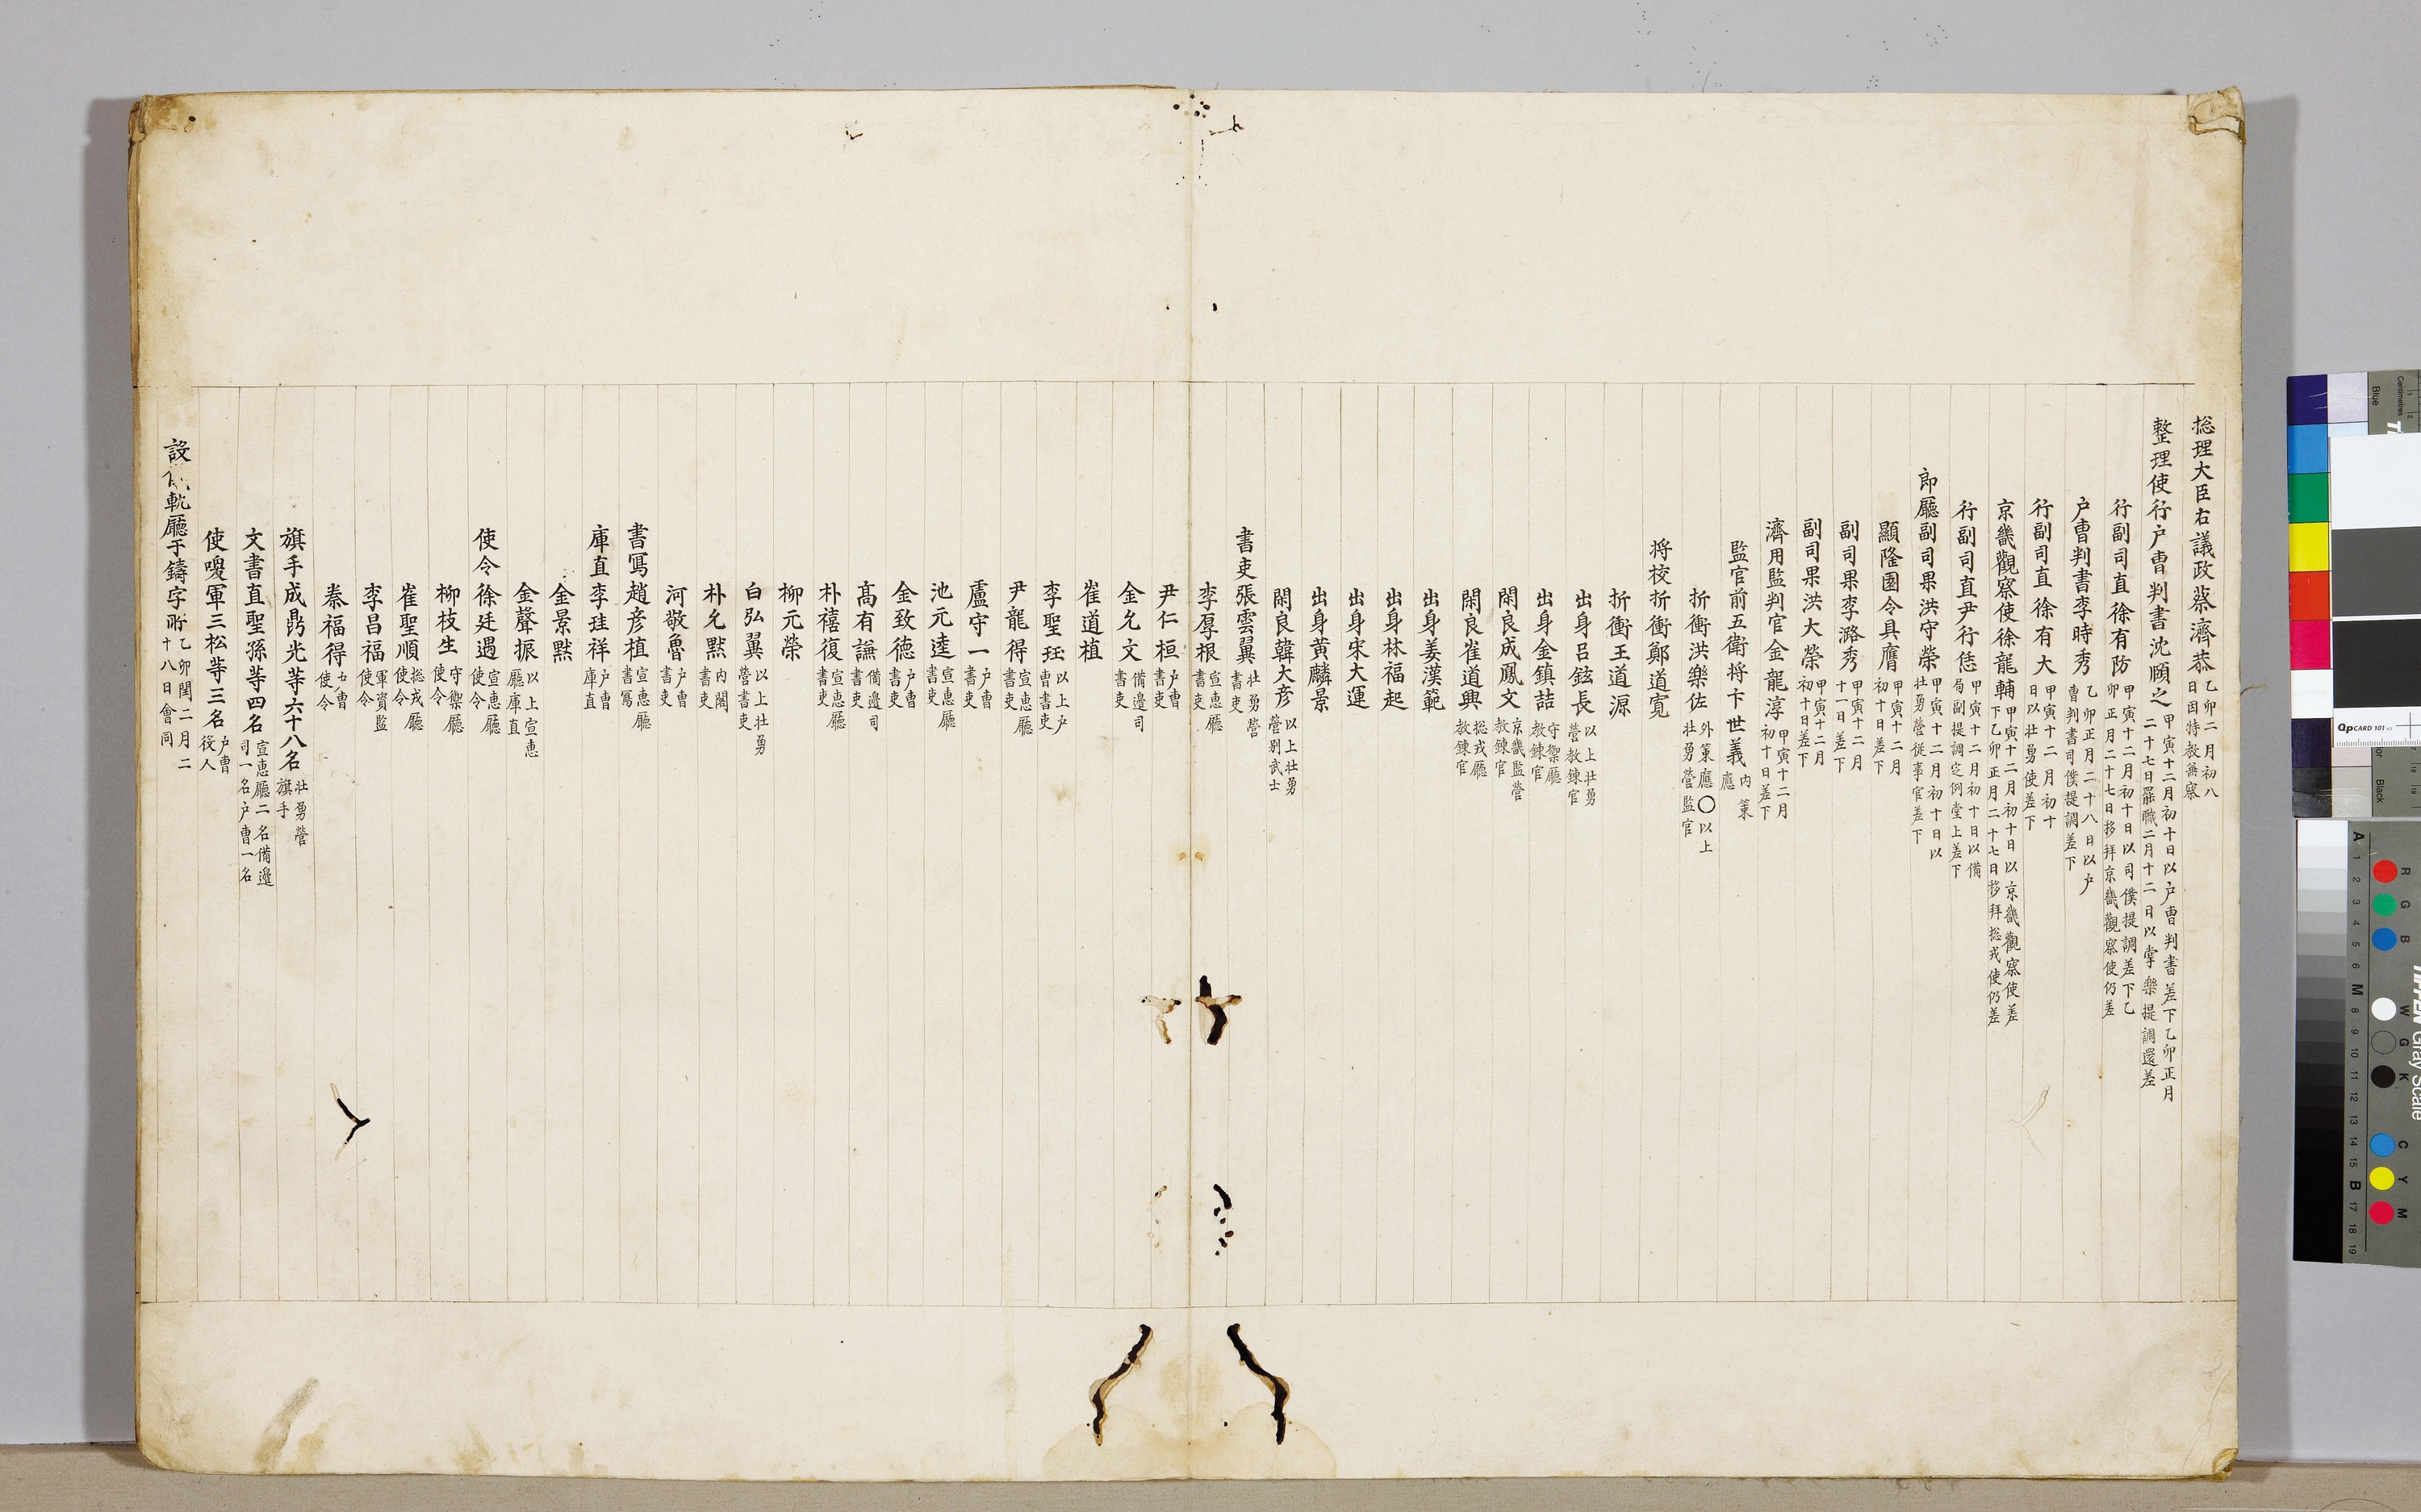 捴理大臣右議政蔡濟恭乙卯二月初八日因特敎無察
整理使行户曹判書沈頤之甲寅十二月初十日以户曹判書差下乙卯正月二十七日罷職二月十二日以掌樂提調還差
行副司直徐有防甲寅十二月初十日以司僕提調差下乙卯正月二十七日移拜京畿觀察使仍差
户曹判書李時秀乙卯正月二十八日以户曹判書司僕提調差下
行副司直徐有大甲寅十二月初十日以壯勇使差下
京畿觀察使徐龍輔甲寅十二月初十日以京畿觀察使差下乙卯正月二十七日移拜捴戎使仍差
行副司直尹行恁甲寅十二月初十日以備局副提調定例堂上差下
郎廳副司果洪守榮甲寅十二月初十日以壯勇營從事官差下
顯隆園令具膺甲寅十二月初十日差下
副司果李潞秀甲寅十二月十一日差下
副司果洪大榮甲寅十二月初十日差下
濟用監判官金龍淳甲寅十二月初十日差下
監官前五衛将卞世義内策應
折衝洪樂佐外策應〇以上壯勇營監官
将校折衝鄭道寬
折衝王道源
出身呂鉉長以上壯勇營教鍊官
出身金鎮喆守禦廳教鍊官
閑良成鳳文京畿監營教鍊官
閑良崔道興捴戎廳教鍊官
出身姜漢範
出身林福起
出身宋大運
出身黄麟景
閑良韓大彦以上壯勇營别武士
書吏張雲翼壯勇營書吏
李厚根宣惠廳書吏
尹仁桓户曹書吏
金允文備邊司書吏
崔道植
李聖珏以上户曹書吏
尹龍得宣惠廳書吏
盧守一户曹書吏
池元逵宣惠廳書吏
金致德户曹書吏
高有謙備邊司書吏
朴禧復宣惠廳書吏
柳元榮
白弘翼以上壯勇營書吏
朴允黙内閣書吏
河敬魯户曹書吏
書寫趙彦植宣惠廳書寫
庫直李珪祥户曹庫直
金景黙
金聲振以上宣惠廳庫直
使令徐廷遇宣惠廳使令
柳枝生守禦廳使令
崔聖順捴戎廳使令
李昌福軍資監使令
秦福得户曹使令
旗手成鼎光等六十八名壯勇營旗手
文書直聖孫等四名宣惠廳二名備邊司一名户曹一名
使喚軍三松等三名户曹役人
設儀軌廳于鑄字所乙卯閏二月二十八日會同